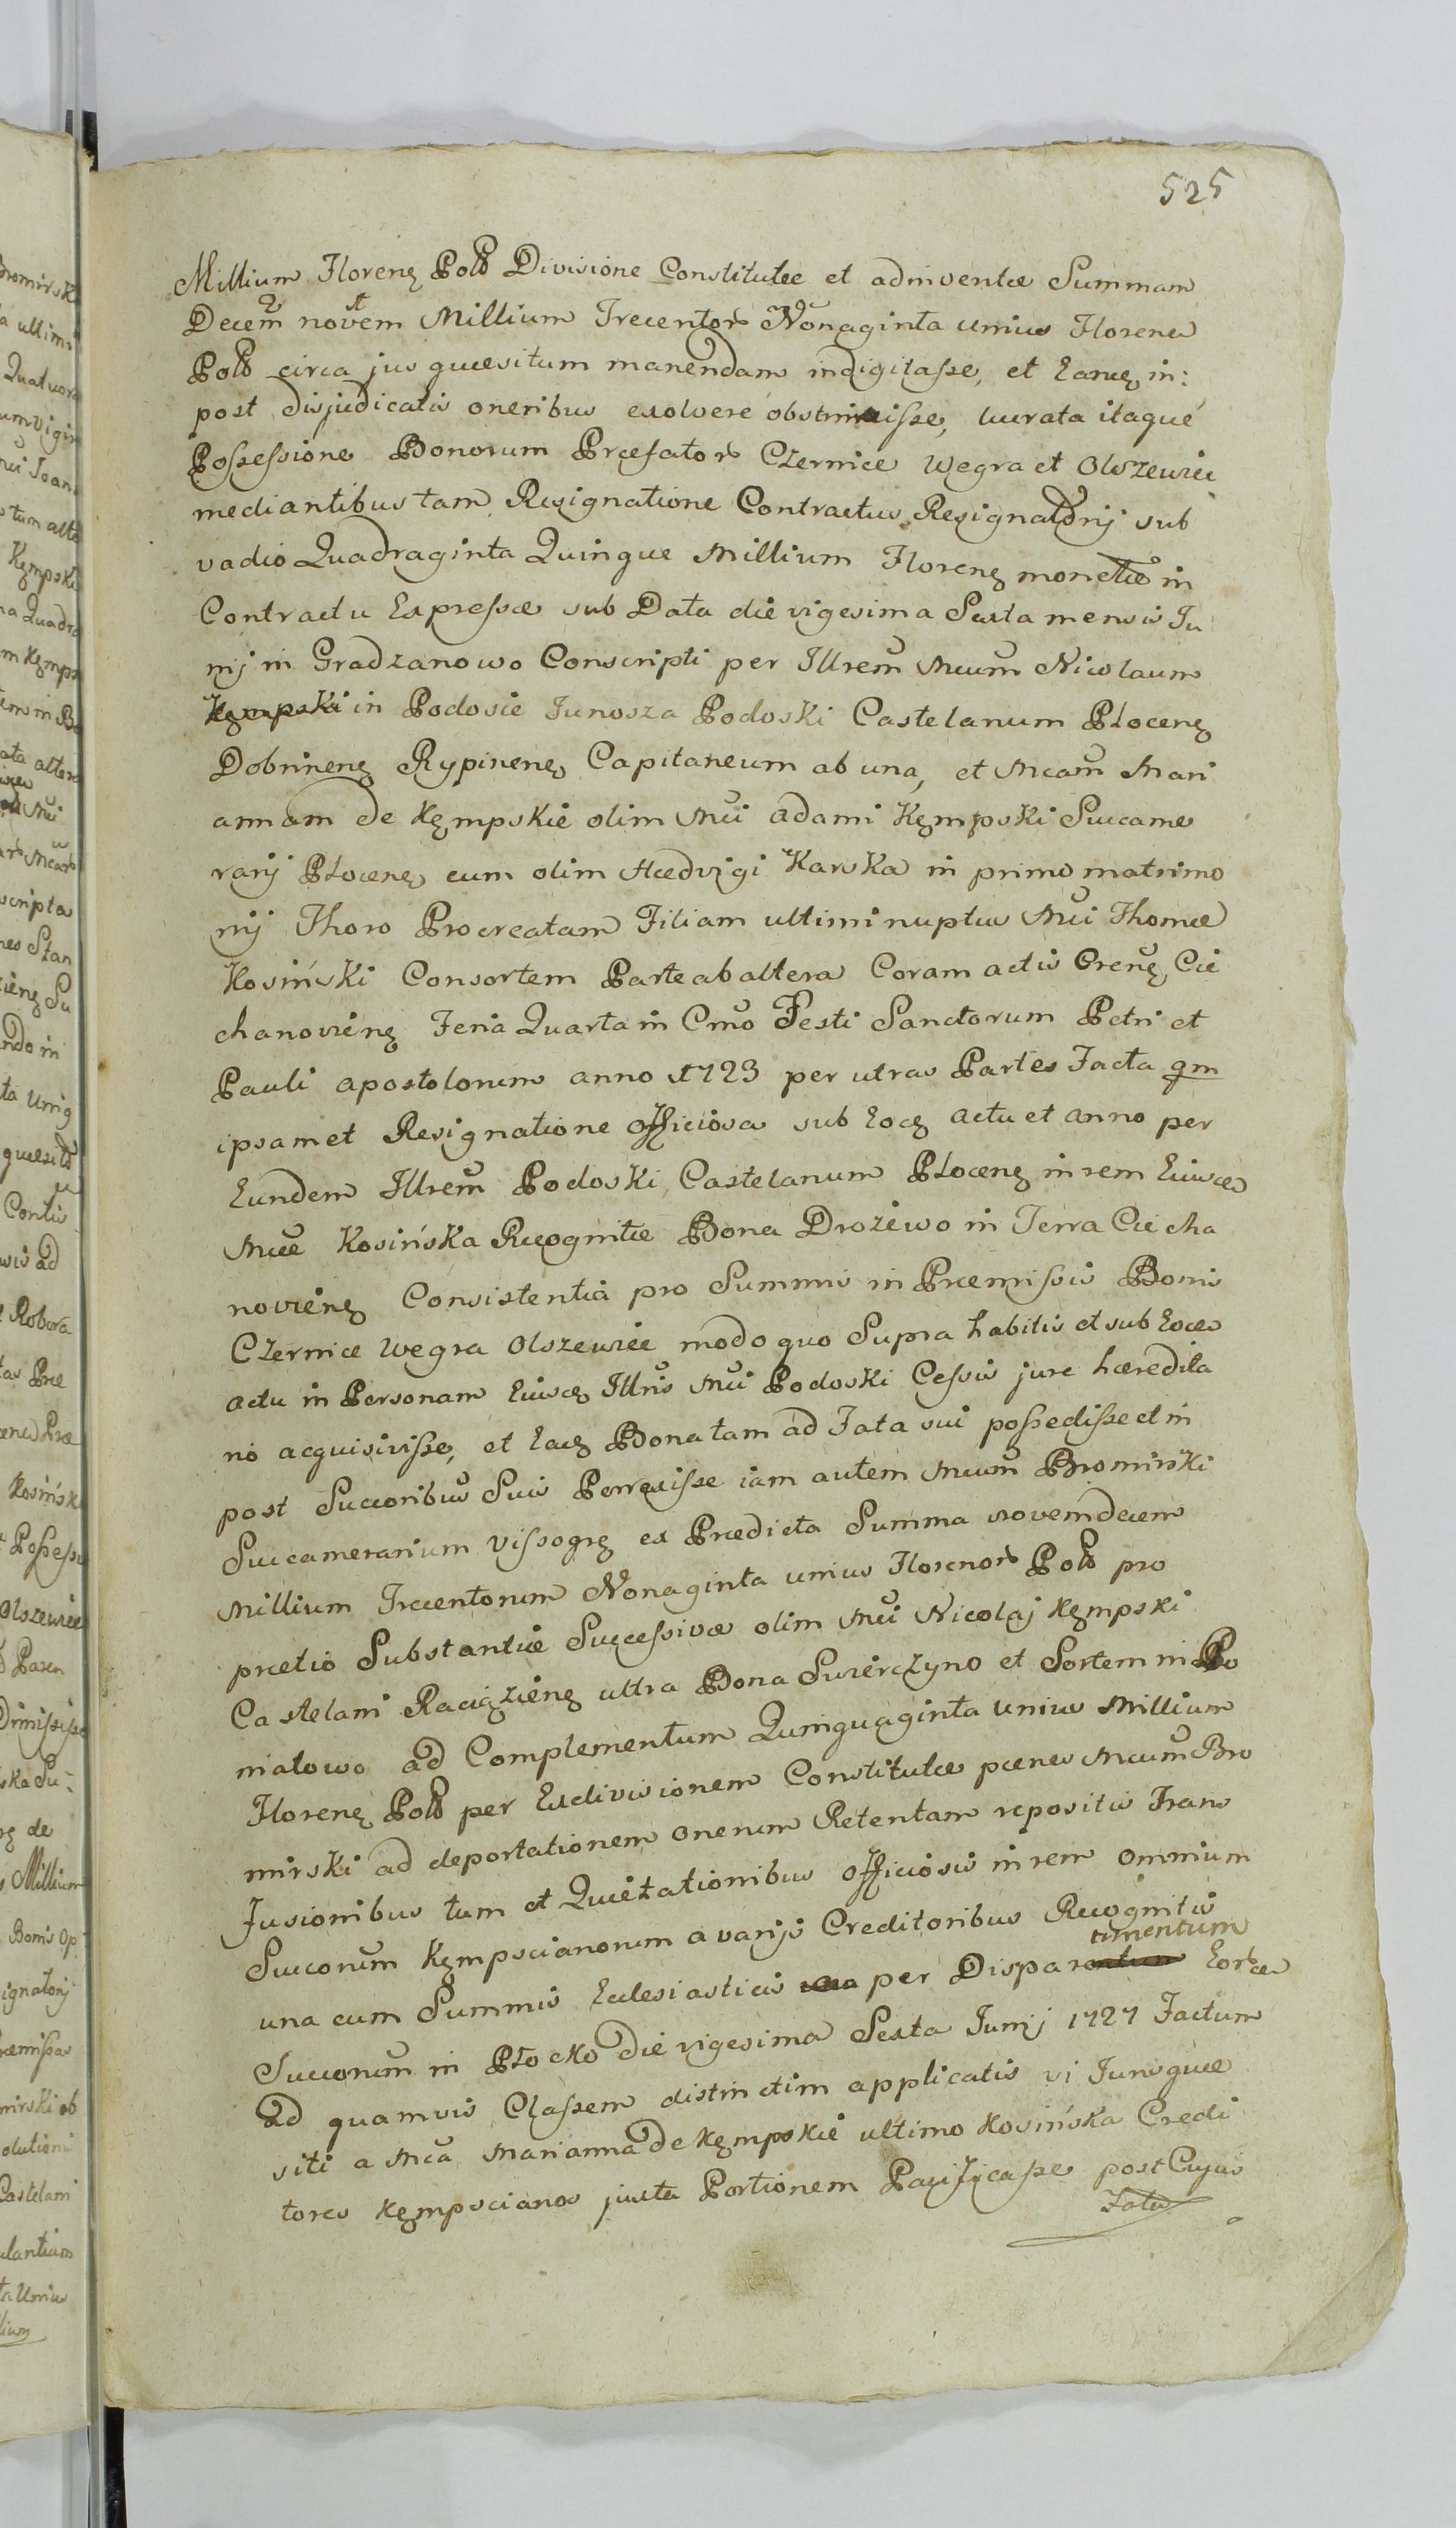 525
Millium Florenȩ Polô Divisione Constitutæ et adinventæ Summam
2 1
Decem novem Millium Trecentorˢ Nonaginta unius Florenȩ
Polô circa jus quæsitum manendam indigitaſse, et Eanȩ in:
post disjudicatis oneribus exolvere obstrinxiſse, lucrata itaquè
Poſseſsione Bonorum Præfatorˢ Czernice Węgra et Olszewiec
mediantibus tam Resignatione Contractus Resignatorij sub
vadio Quadraginta Quinque Millium Florenȩ monetæ in
Contractu Expreſsæ sub Data die vigesima Sexta mensis Ju
nij in Gradzanowo Conscripti per Illrem Mcum Nicolaum
Kempski in Podosie Junosza Podoski Castelanum Płocenȩ
Dobrinenȩ Rypinenȩ Capitaneum ab una, et Mcam Mari
annam de Kęmpskie olim Mci Adami Kęmpski Succame
rarij Płocenȩ cum olim Hædvigi Karska in primo matrimo
nij Thoro Procreatam Filiam ultimi nuptus Mci Thomæ
Kosiński Consortem Parte ab altera Coram actis Orenȩ Cie
chanovienȩ Feria Quarta in Cmo Festi Sanctorum Petri et
Pauli apostolorum anno 1723 per utras Partes Facta qm
ipsamet Resignatione Officiosa sub Eocȩ actu et anno per
Eundem Illrem Podoski Castelanum Płocenȩ in rem Eiusce
Mcæ Kosińska Recognitæ Bona Drożewo in Terra Ciecha
novienȩ Consistentia pro Summis in Præmiſsis Bonis
Czernice Węgra Olszewiec modo quo Supra habitis et sub Eoce
actu in Personam Eiuscȩ Illris Mci Podoski Ceſsis jure hæredita
rio acquisiviſse, et Eacȩ Bona tam ad Fata sui poſsediſse et in
post Succoribus Suis Perrexiſse iam autem Mcum Bromirski
Succamerarium Viſsogrȩ ex Prædicta Summa Novemdecem
Millium Trecentorum Nonaginta unius Florenorˢ Polô pro
prætio Substantiæ Succeſsivæ olim Mci Nicolaj Kęmpski
Castelani Raciążienȩ ultra Bona Swierczyno et Sortem in Po
niatowo ad Complementum Quinquaginta unius Millium
Florenȩ Polô per Exdivisionem Constitutæ pænes Mcum Bro
mirski ad deportationem onerum Retentam repositis Trans
fusionibus tum et Quietationibus officiosis in rem omnium
Succorum Kęmpscianorum a varijs Creditoribus Recognitis
timentum
una cum Summis Ecclesiasticis per Dispar Eorˢce
Succorum in Płocko die vigesima Sexta Junij 1727 Factum
ad quamvis Claſsem distinctim applicatis vi Juris quæ
siti a Mca Marianna de Kęmpskie ultimo Kosińska Credi
tores Kęmpscianos juxta Portionem Pacificaſse post Cujus
Fata